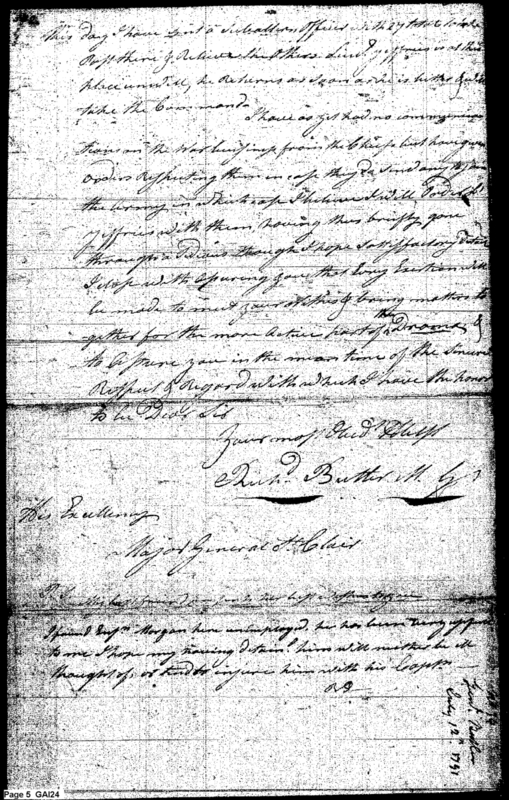 this day I have sent a Subaltern Officer with 27 to
Post there & Relieve the others Lieut. Jeffries is at that
place unwell, he Returns as soon as he is better &
take the Command.
I have as yet had no
from the Chiefs but have given
Orders Respecting them in case they send any to join
the army in which case I believe I will
Jeffries with them, having thus briefly gone
through a Tedious though I hope Satisfactory
I close with assuring you that Every Exertion will
be made to meet your wishes & bring matters to
gether for the more active part of the Drama &
to assure you in the mean time of the Sincere
Respect & Regard with which I have the honor
to be Dear Sir
Your most Obedt
Richd. Butler M. G.
His Excellency
Major General St. Clair
P.S.
I found Ensn. Morgan here unemployed, he has been very
to me I hope my having detaind. him will neither be ill
thought of, or tend to injure him with his Captn.
RB
Genl. Butler
July 12th 1791
Page 5 GAI24